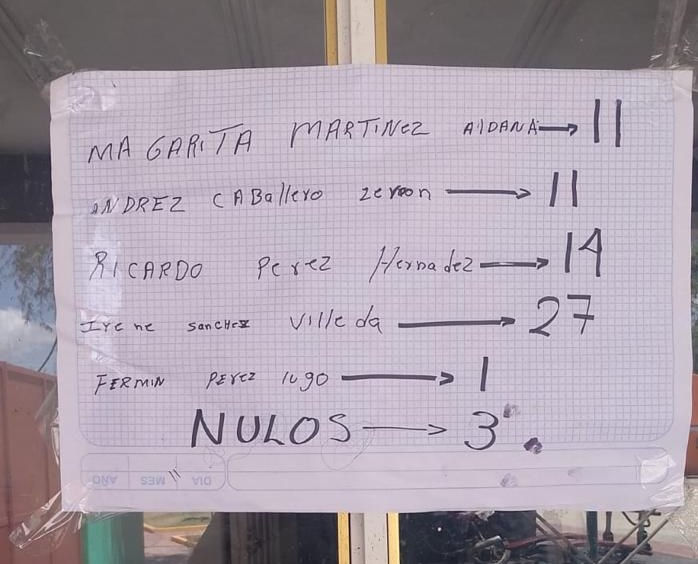 MAGARITA MARTINEZ AIDANA → 11
ANDREZ CABallero zeron → 11
RICARDO Perez Hernadez → 14
Irene sanchez villeda → 27
FERMIN Perez lugo → 1
NULOS → 3.
DIA MES AÑO